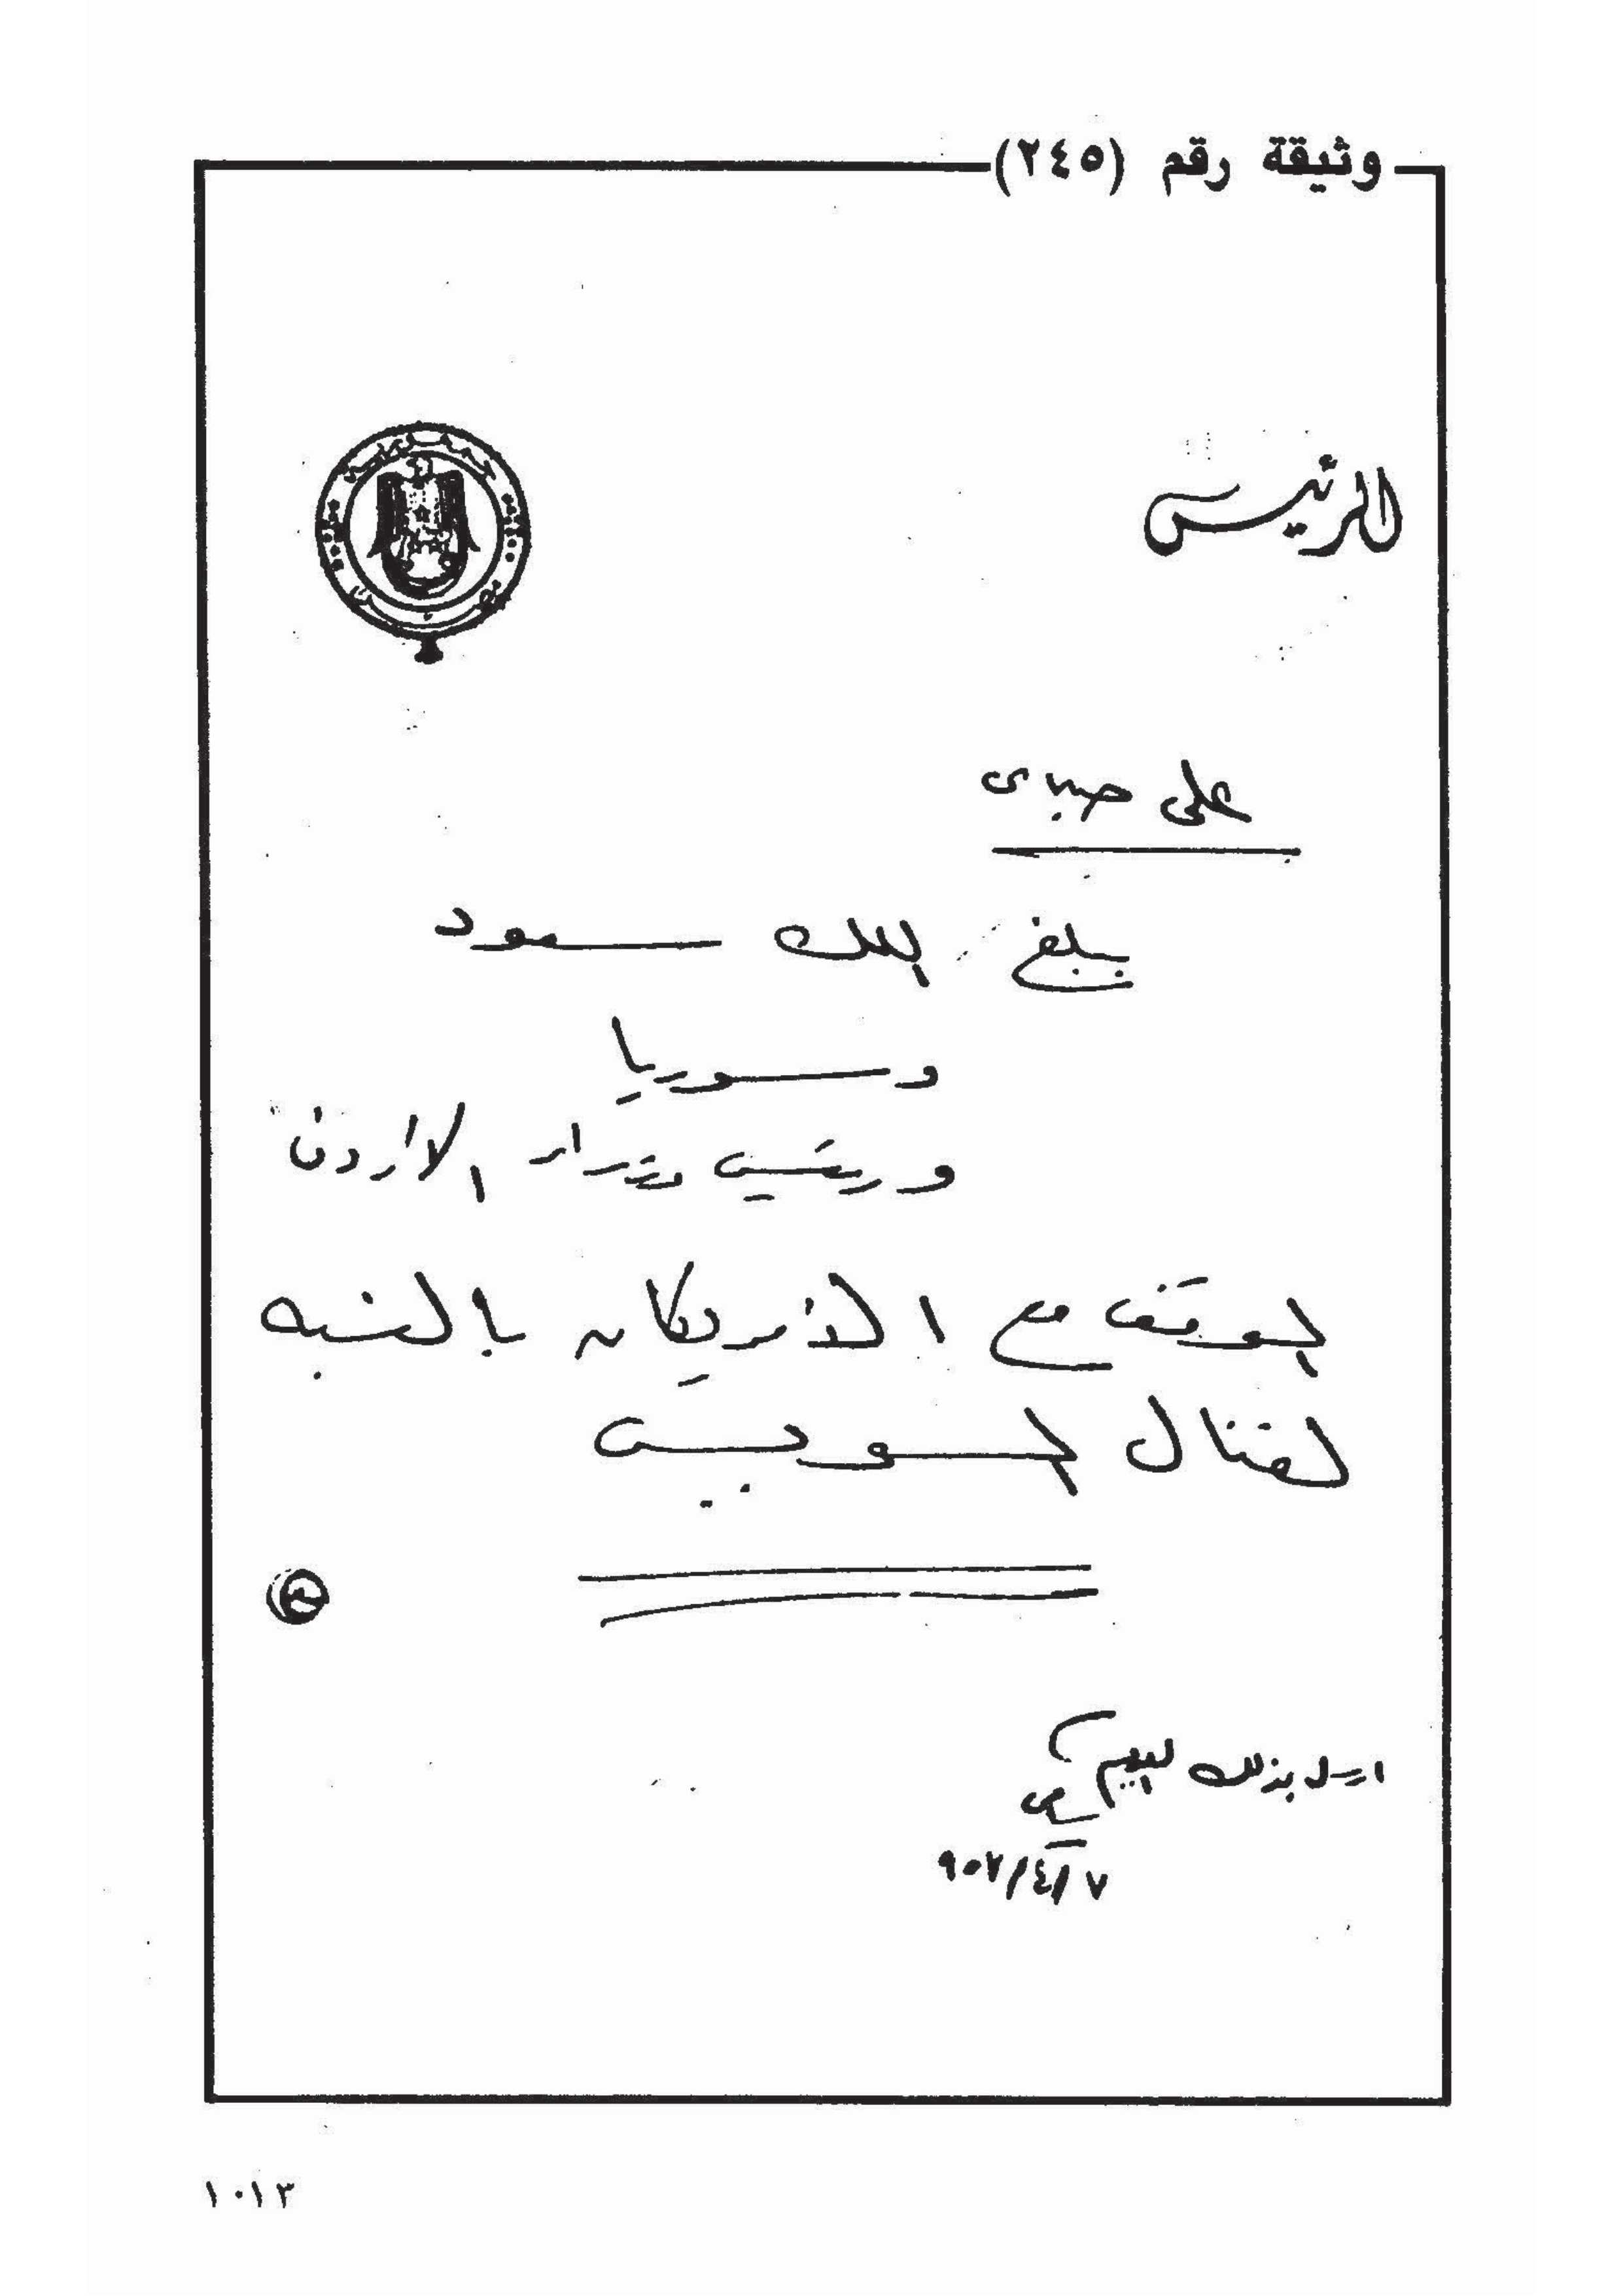 وثيقة رقم (٢٤٥)
الرئيس
على صبرى
يبلغ الملك سعود
و سوريا
و رئيس وزراء الأردن
الموقف مع الأمريكان بالنسبه
لقنال السويس
ارسل بذلك لليوم
٧/٤/٩٥٧
١٠١٣